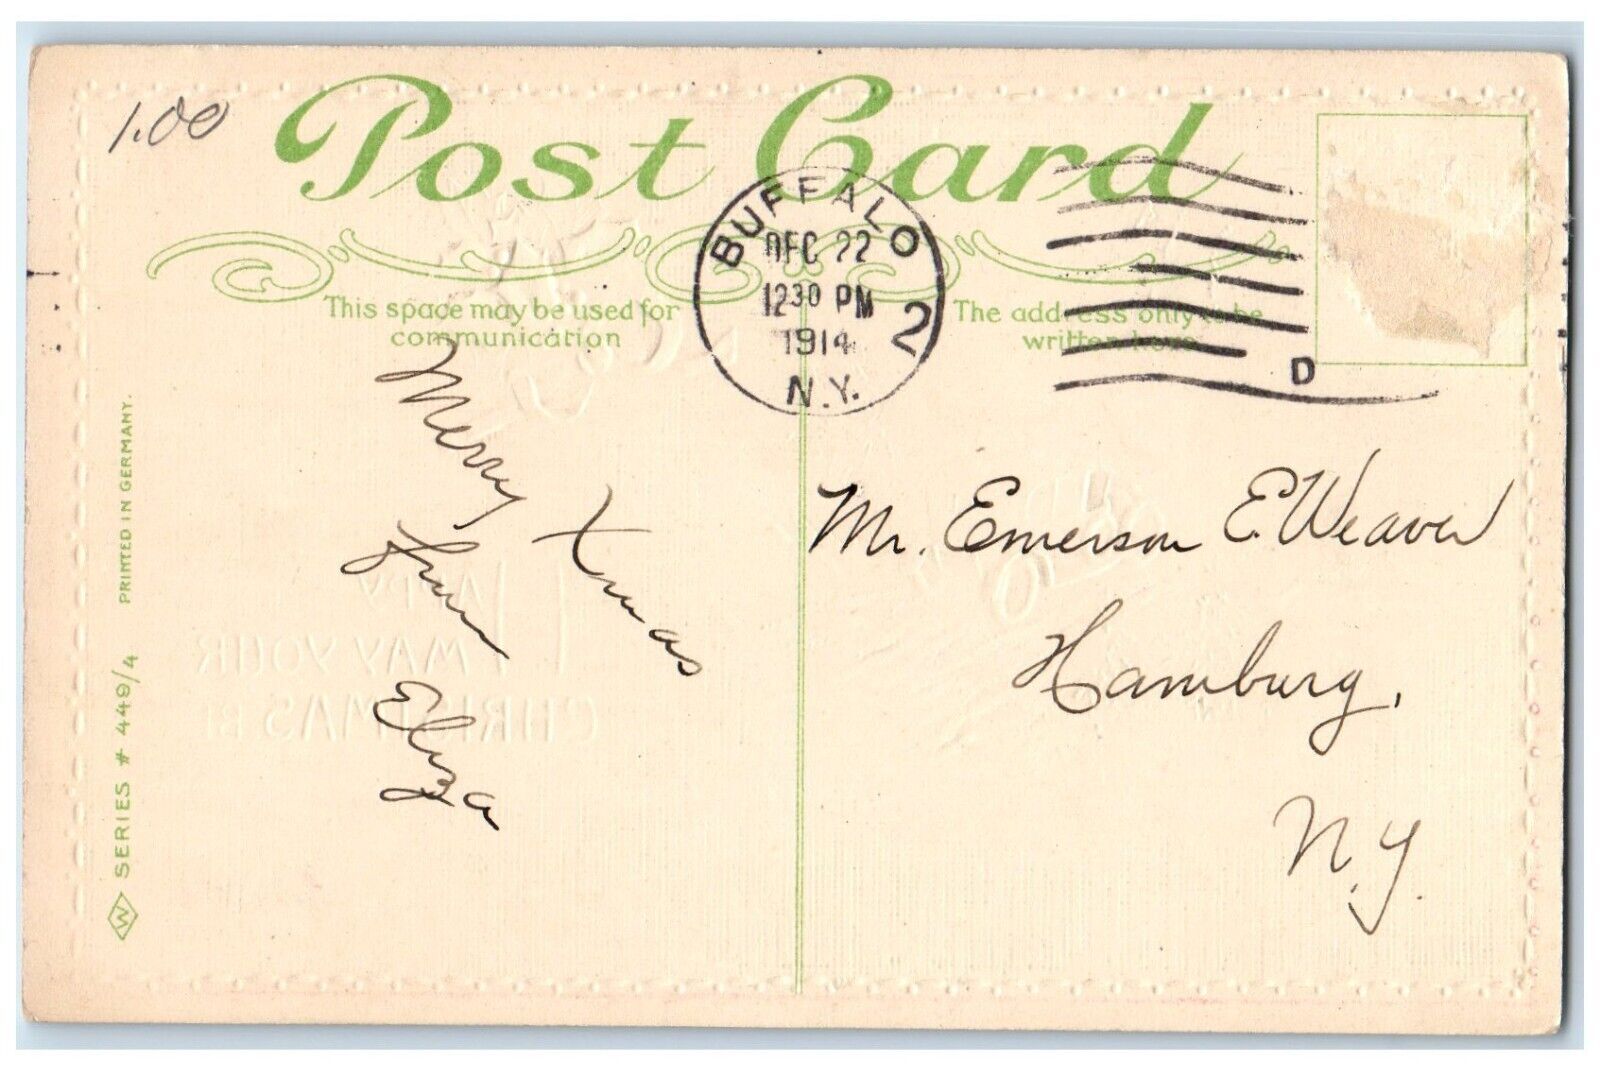 1.00
Post Card
This space may be used for
communication
BUFFALO
DEC 22
12 30 PM
1914
N.Y.
2
The address only to be
written here
D
Merry
Xmas
from
Eliza
Mr. Emerson E. Weaver
Hamburg,
N.Y.
W SERIES # 449/4 PRINTED IN GERMANY.
MAY YOUR
CHRISTMAS BE